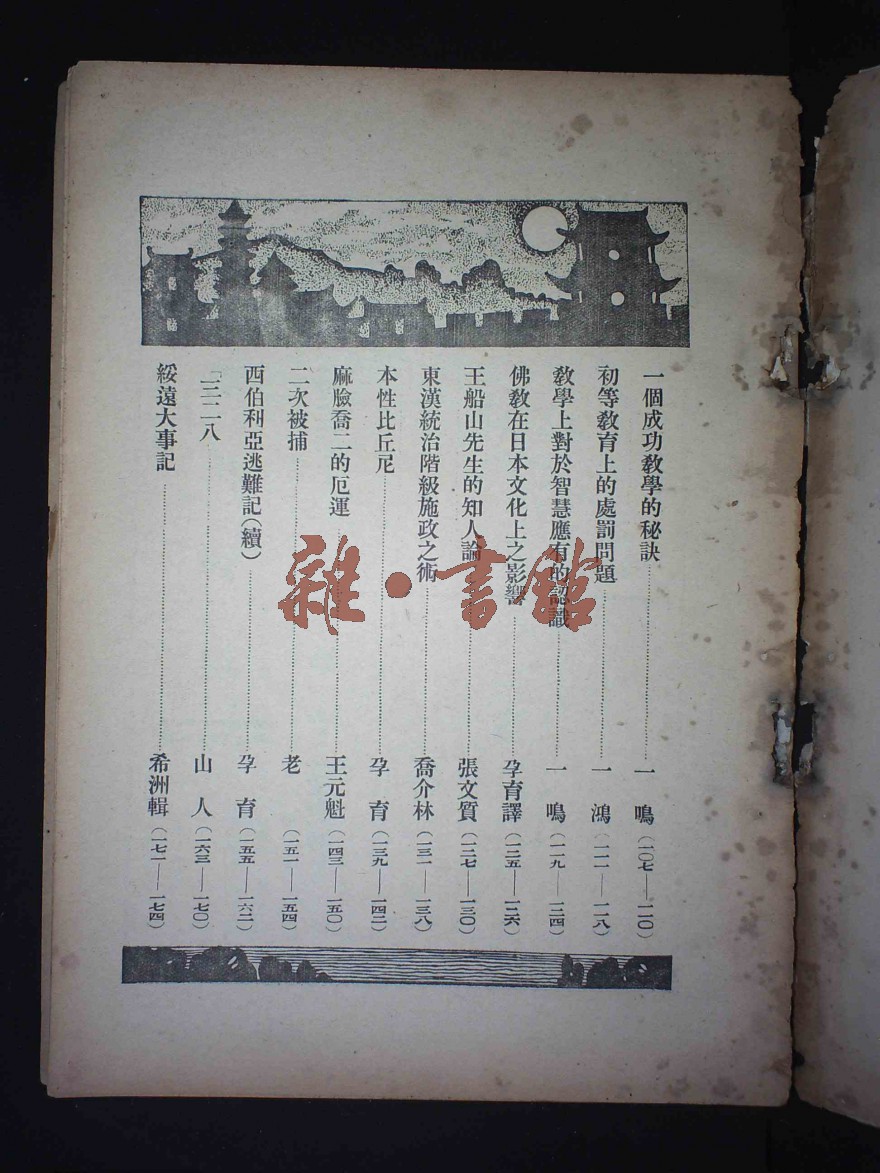 一個成功教學的秘訣……一鳴(一〇七——一一〇)
初等教育上的處罰問題……一鴻(一一一——一一八)
教學上對於智慧應有的認識……一鳴(一一九——一二四)
佛教在日本文化上之影響……孕育譯(一二五——一二六)
王船山先生的知人論……張文質(一二七——一三〇)
東漢統治階級施政之術……喬介林(一三一——一三八)
本性比丘尼……孕育(一三九——一四二)
麻臉喬二的厄運……王元魁(一四三——一五〇)
二次被捕……老(一五一——一五四)
西伯利亞逃難記(續)……孕育(一五五——一六二)
「三一八……山人(一六三——一七〇)
綏遠大事記……希洲輯(一七一——一七四)
雜·書館